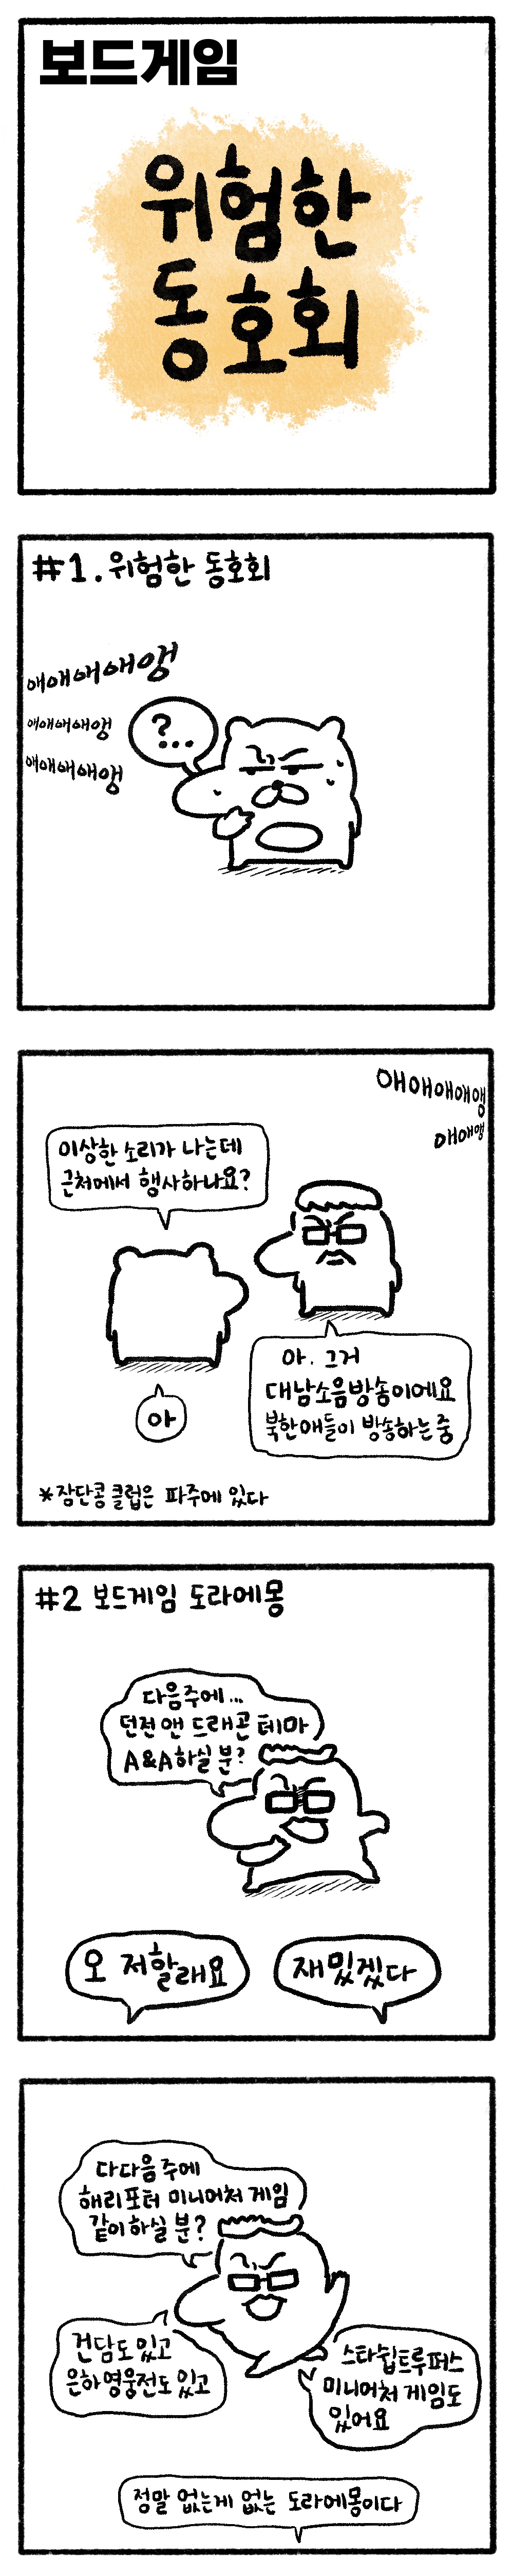 보드게임
위험한
동호회
#1. 위험한 동호회
애애애애앵
애애애애앵
애애애애앵
?...
애애애애앵
애애앵
이상한 소리가 나는데
근처에서 행사하나요?
아. 그거
대남소음방송이에요
북한애들이 방송하는 중
아
*잠단콩 클럽은 파주에 있다
#2 보드게임 도라에몽
다음주에...
던전 앤 드래곤 테마
A&A하실 분?
오 저할래요
재밌겠다
다다음 주에
해리포터 미니어처 게임
같이하실 분?
건담도 있고
은하영웅전도 있고
스타쉽트루퍼스
미니어처 게임도
있어요
정말 없는게 없는 도라에몽이다